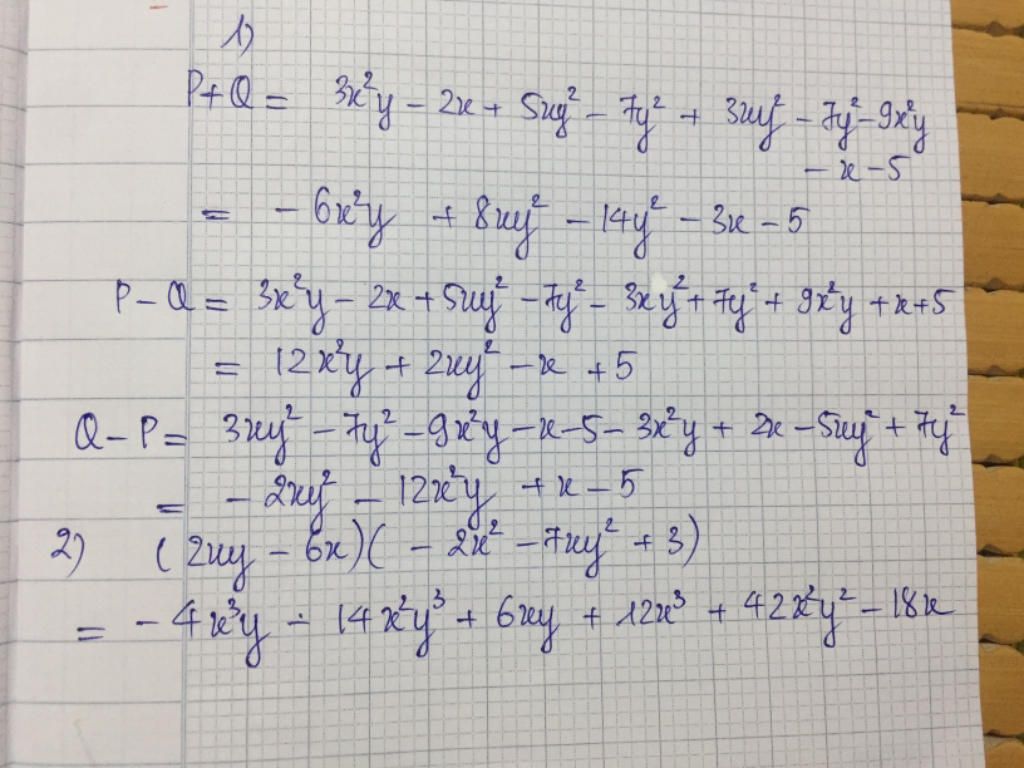 1)
P+Q = 3x²y - 2x + 5xy² - 7y² + 3xy² - 7y² - 9x²y
- x - 5
= - 6x²y + 8xy² - 14y² - 3x - 5
P - Q = 3x²y - 2x + 5xy² - 7y² - 3xy² + 7y² + 9x²y + x + 5
= 12x²y + 2xy² - x + 5
Q - P = 3xy² - 7y² - 9x²y - x - 5 - 3x²y + 2x - 5xy² + 7y²
= - 2xy² - 12x²y + x - 5
2) (2xy - 6x)( - 2x² - 7xy² + 3)
= - 4x³y - 14x²y³ + 6xy + 12x³ + 42x²y² - 18x